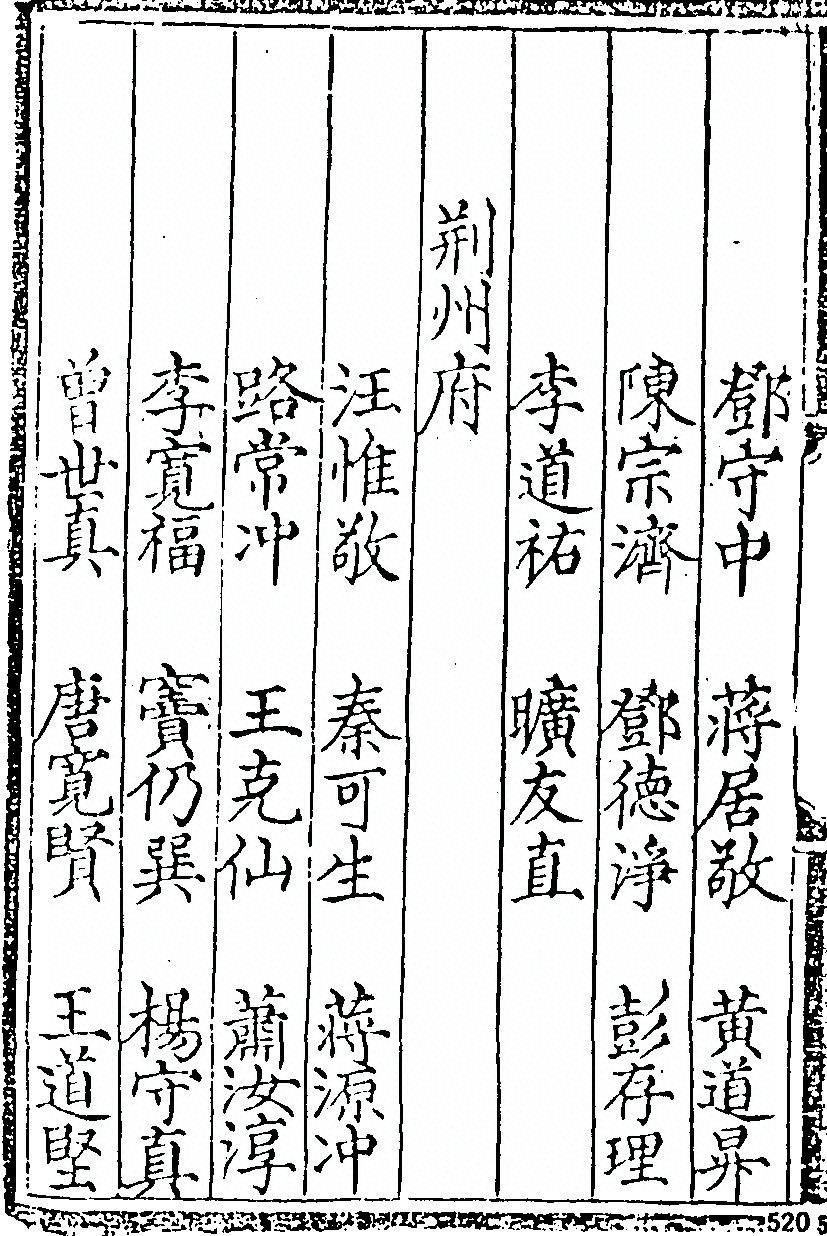 鄧守中 蔣居敬 黄道昇
陳宗濟 鄧德淨 彭存理
李道祐 曠友直
荆州府
汪惟敬 秦可生 蔣源冲
路常冲 王克仙 蕭汝淳
李寛福 竇仍巽 楊守真
曾世真 唐寛賢 王道堅
520